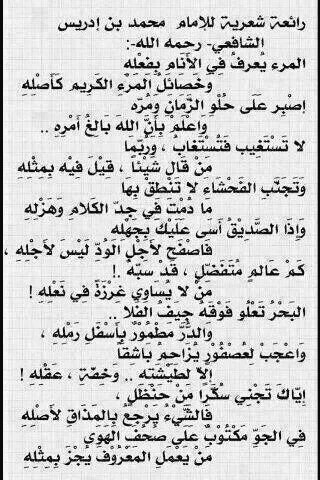 رائعة شعرية للإمام محمد بن إدريس
الشافعي- رحمه الله-:
المرء يُعرفُ فِي الأَنَامِ بِفعْلِهِ
وَخَصَائِلُ المَرْءِ الكَرِيم كَأَصْلِهِ
إصْبِر عَلَى حُلْوِ الزَّمَانِ وَمُرّه
وَاعْلَمْ بِأَنَّ اللهَ بَالِغُ أمْرِهِ ..
لا تَسْتَغِيب فَتُسْتَغابُ ، وَرُبّمَا
مَنْ قَال شَيْئاً ، قِيْلَ فِيْه بِمِثْلِهِ
وَتَجَنَّبِ الفَحْشَاءَ لا تَنْطِقْ بِهَا
مَا دُمْتَ فِي جِدّ الكَلامِ وَهَزْلِهِ
وَإِذَا الصَّدِيْقُ أسَى عَلَيْكَ بِجَهْلِهِ
فَاصْفَح لأجْلِ الوُدِّ لَيْسَ لأجْلِهِ ،
كَمْ عَالمٍ مُتَفَضِّلٍ ، قَدْ سَبّهُ .!
مَنْ لا يُسَاوِي غِرْزَةً فِي نَعْلِهِ !
البَحْرُ تَعْلُو فَوْقَهُ جِيفُ الفَلا ..
وَالدُّرّ مَطْمُوْرٌ بِأَسْفَلِ رَمْلِهِ ،
وَاعْجَبْ لِعُصْفُوْرٍ يُزَاحِمُ بَاشِقَا
إلاّ لِطَيْشَتِهِ .. وَخِفّةِ ، عَقْلِهِ !
إيّاكَ تَجْنِي سُكَّرًا مِنْ حَنْظَلٍ ،
فَالشَّيْءُ يَرْجِعُ بِالمَذَاقِ لأَصْلِهِ
فِي الجَوِّ مَكْتُوْبٌ عَلَى صُحُفِ الهَوَى
مَنْ يَعْمَلِ المَعْرُوْفَ يُجْزَ بِمِثْلِهِ